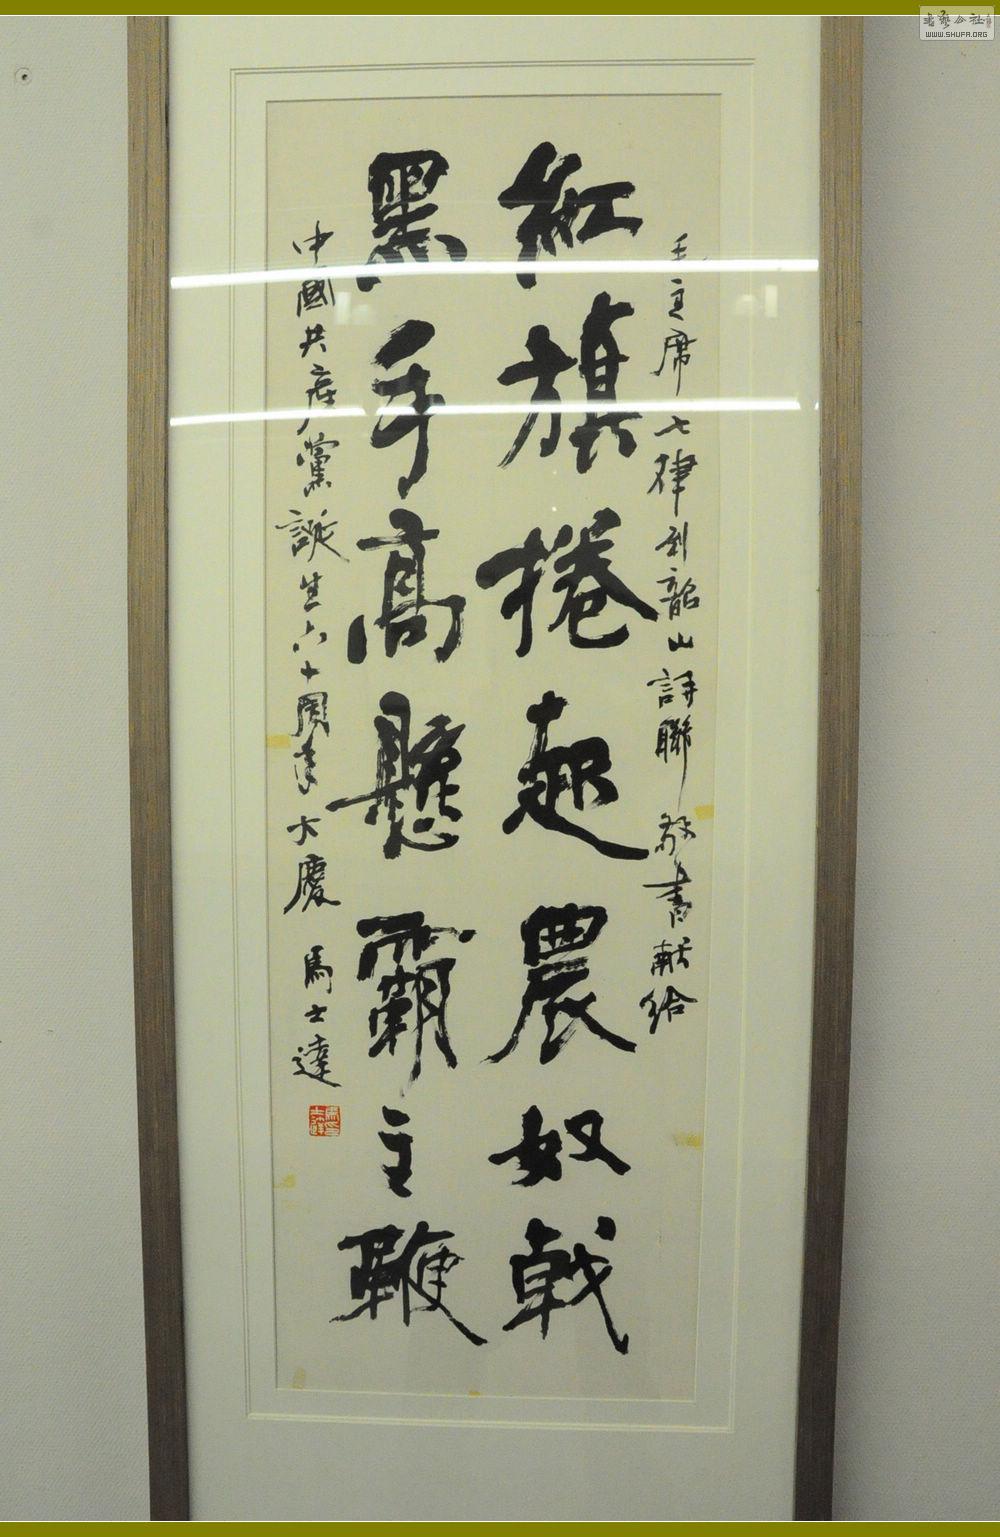 毛主席七律到韶山詩聯敬書献给
紅旗捲起農奴戟
黑手高懸霸主鞭
中國共产黨誕生六十周年大慶 馬士達
WWW.SHUFA.ORG